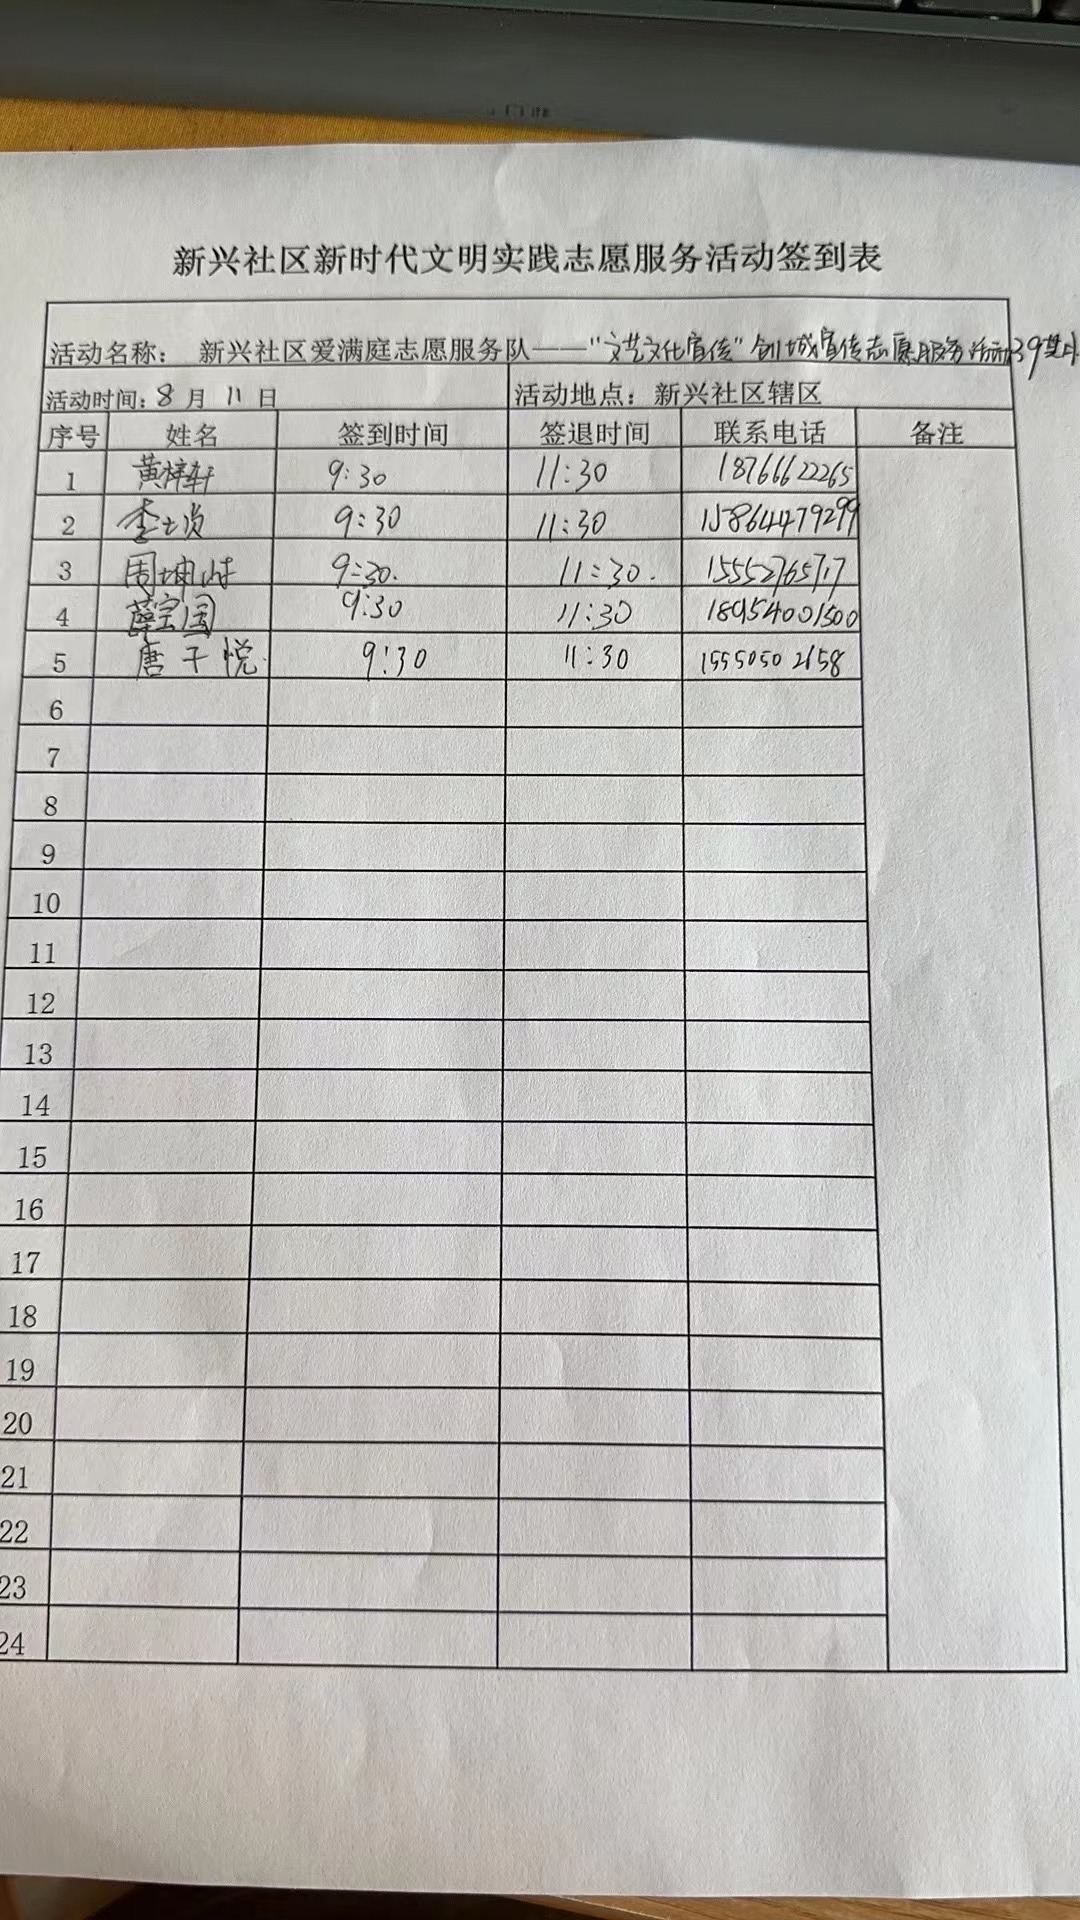 新兴社区新时代文明实践志愿服务活动签到表
活动名称： 新兴社区爱满庭志愿服务队——“文艺文化宣传”创城宣传志愿服务活动39
活动时间：8月11日 活动地点：新兴社区辖区
序号 姓名 签到时间 签退时间 联系电话 备注
1 黄梓轩 9:30 11:30 18766622265
2 李 9:30 11:30 15864479299
3 周坤 9:30. 11:30. 15552765717
4 薛宝国 9:30 11:30 18954001500
5 唐子悦. 9:30 11:30 15550502658
6
7
8
9
10
11
12
13
14
15
16
17
18
19
20
21
22
23
24